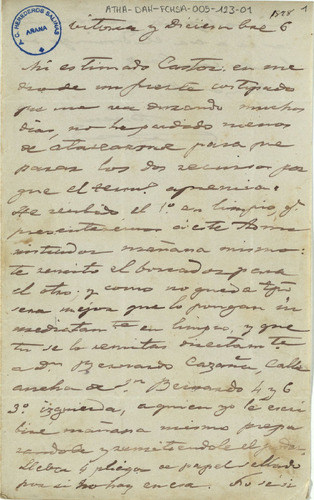 ATHA-DAH-FCHSA-005-123-01
A. C. HEREDEROS SALINAS
AÑANA
1
Vitoria y Diciembre 6
Mi estimado Castor: en me
dio de un fuerte costipado
que me va durando muchos
dias, no he podido menos
de atarearme para pre
parar los dos recursos por
que el term.º apremia.
He recibido el 1º en limpio, y
presentaremos á este Admi
nistrador mañana mismo:
te remito el borrador para
el otro; y como no queda tpº
será mejor que lo pongan in
mediatam.te en limpio, y que
tu se lo remitas directam.te
a Dn Bernardo Cazaña, Calle
ancha de Sn Bernardo 4 y 6
3º izquierda, a quien yo le escri
biré mañana mismo prepa
randole y remitiendole el
Lleba 4 pliegos de papel sellado
por si no hay en esa. No se si